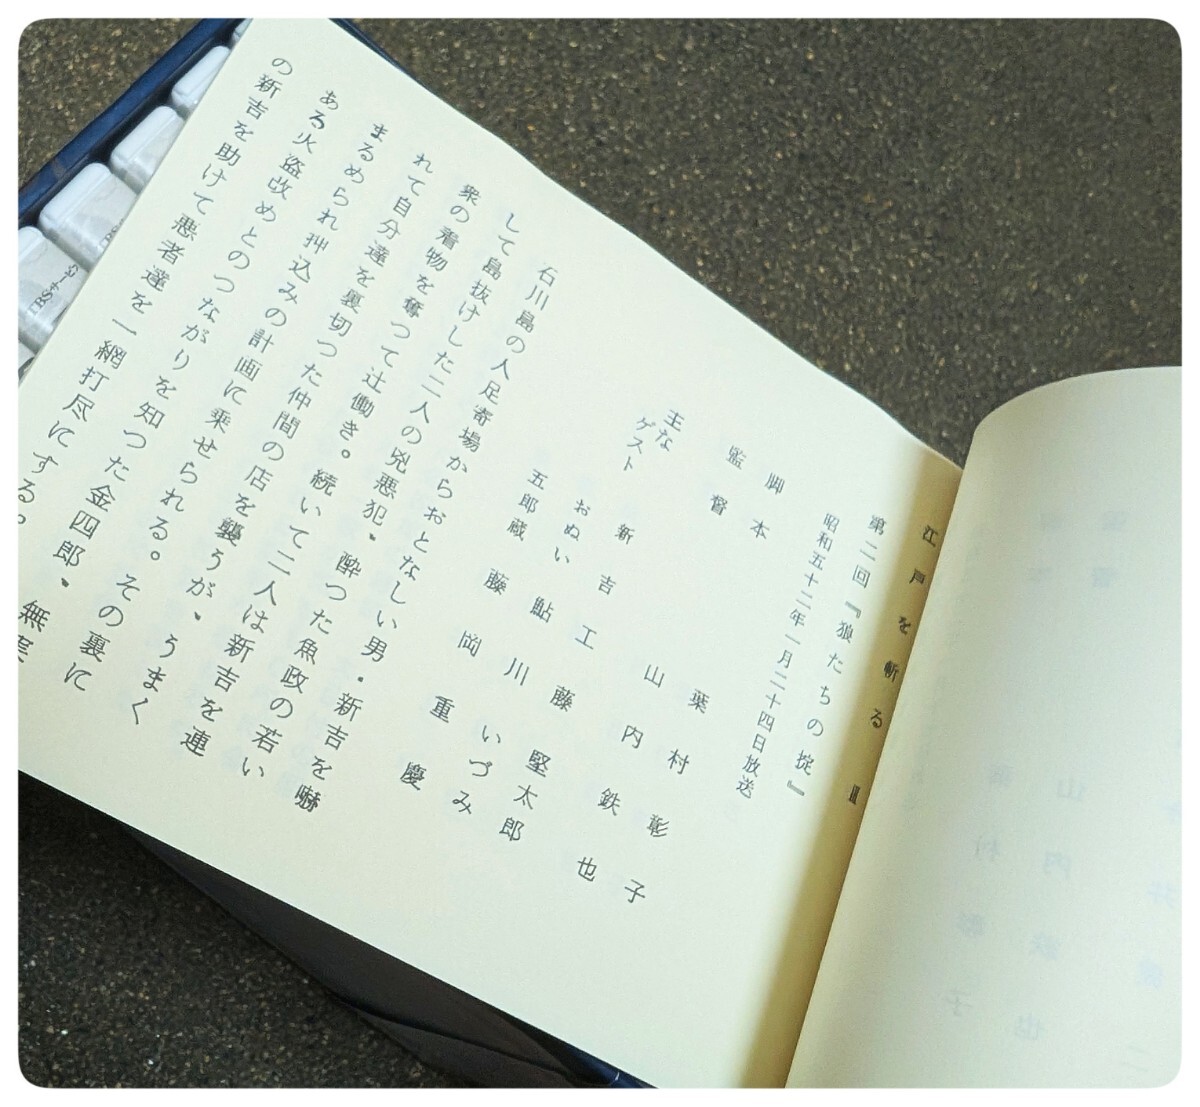 江戸を斬る Ⅲ
第二回『狼たちの掟』
昭和五十二年一月二十四日放送
脚本 葉村彰子
監督 山内鉄也
主な
ゲスト
新吉 工藤堅太郎
おぬい 鮎川いづみ
五郎蔵 藤岡重慶
石川島の人足寄場からおとなしい男・新吉を嚇
して島抜けした二人の兇悪犯、酔つた魚政の若い
衆の着物を奪つて辻働き。続いて二人は新吉を連
れて自分達を裏切つた仲間の店を襲うが、うまく
まるめられ押込みの計画に乗せられる。その裏に
ある火盗改めとのつながりを知つた金四郎、無実
の新吉を助けて悪者達を一網打尽にする。